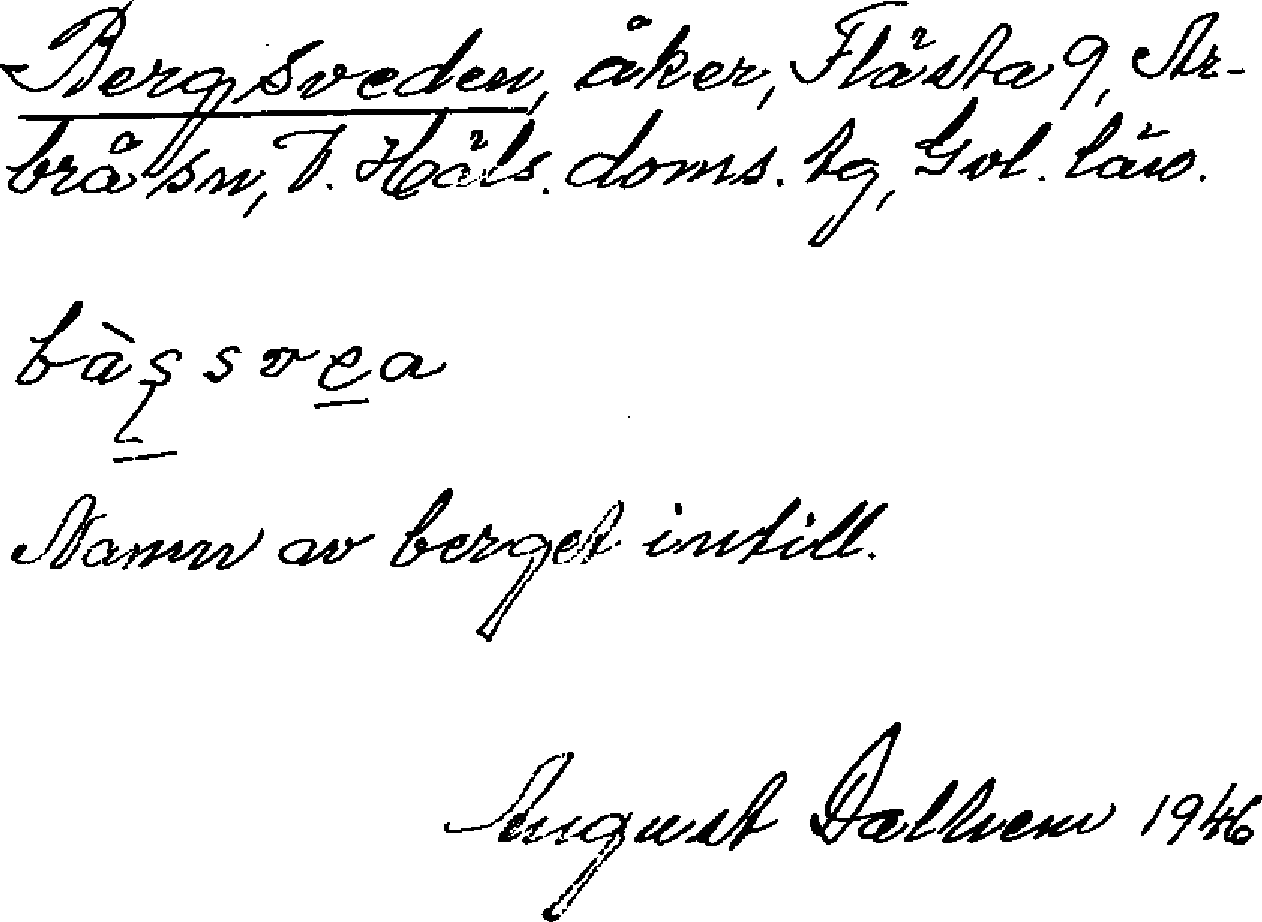 Bergsveden, åker, Flästa 9, Ar-
brå sn, V. Häls. doms. tg, Gvl. län.
bàşsvea
Namn av berget intill.
August Dalhem 1946